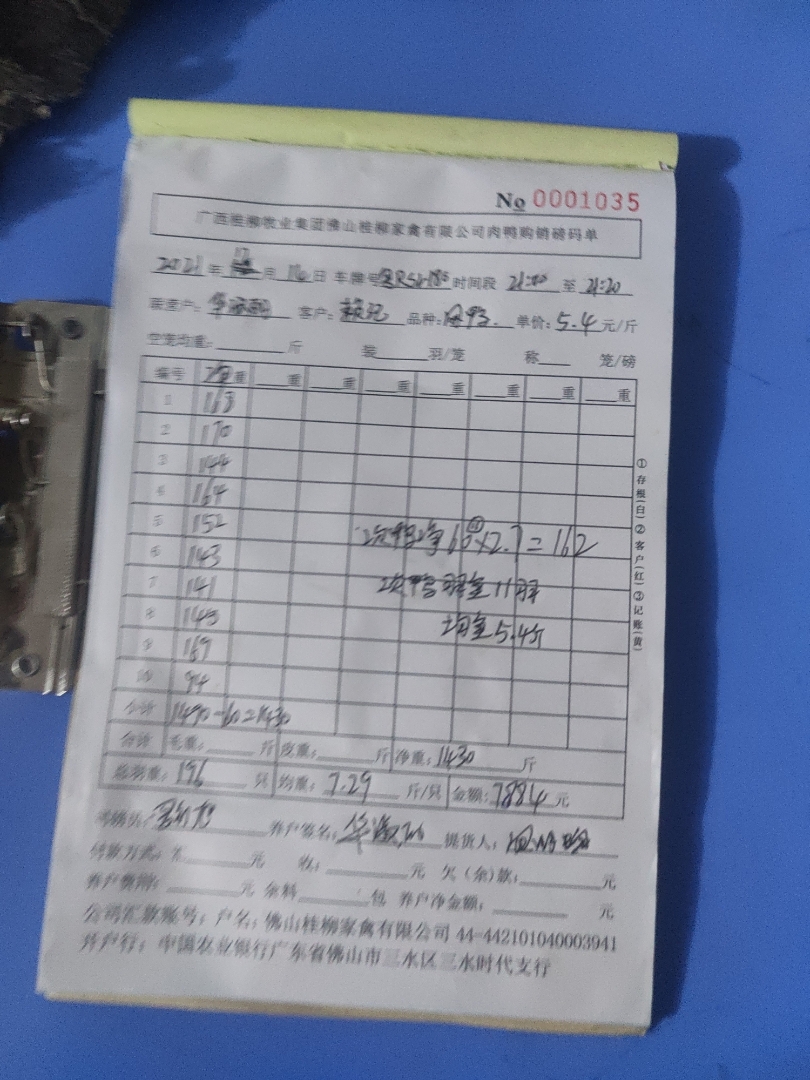 No 0001035
广西桂柳牧业集团佛山桂柳家禽有限公司肉鸭购销磅码单
2021 年 12 月 14 日 车牌号 时间段 21:00 至 21:20
客户: 品种: 单价: 5.4 元/斤
空笼均重: 斤 装 羽/笼 称 笼/磅
编号 净重 重 重 重 重 重 重 重
1 163
2 170
3 144
4 164
5 152
6 143
7 141
8 149
9 169
10 94
次鸭净60×2.7=162
次鸭羽重11羽
均重5.4斤
小计 1490-60=1430
合计 毛重: 斤 皮重: 斤 净重: 1430 斤
总羽重: 196 只 均重: 7.29 斤/只 金额: 7884 元
养户签名: 提货人:
付款方式: 元 收: 元 欠(余)款: 元
养户费用: 元 余料 包 养户净金额: 元
公司汇款账号: 户名: 佛山桂柳家禽有限公司 44-442101040003941
开户行: 中国农业银行广东省佛山市三水区三水时代支行
①存根(白)②客户(红)③记账(黄)